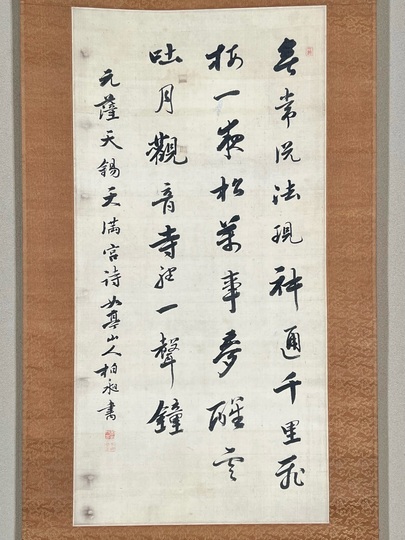 無常説法現神通千里飛
梅一夜松萬事夢醒雲
吐月觀音寺裡一聲鐘
元薩天錫天満宮詩如亭山人柏昶書